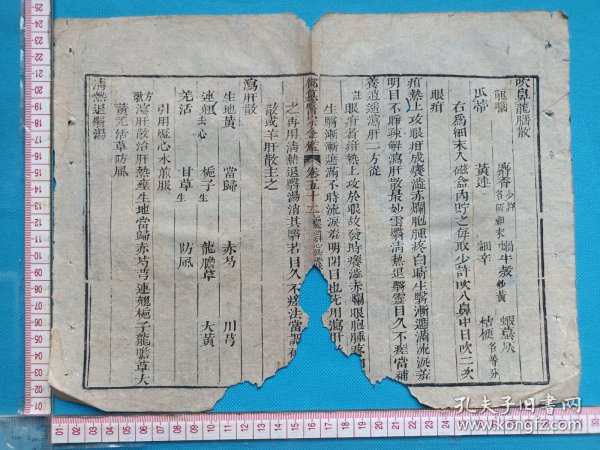 吹鼻龍腦散
龍腦 麝香少許 蝸牛殼炒黃 蝦蟇灰
瓜蒂 黃連 細辛 桔梗各等分
右為細末入磁盒內貯之每取少許吹入鼻中日吹二次
眼疳
疳熱上攻眼疳成癢澁赤爛胞腫疼白睛生翳漸遮滿流淚羞
明目不睜疎解瀉肝散最妙雲翳清熱退翳靈目久不痊當補
養逍遙瀉肝二方從
註眼疳者疳熱上攻於眼故發時癢澁赤爛眼胞腫疼
生翳漸漸遮滿不時流淚羞明閉目也先用瀉肝
御纂醫宗金鑑 卷五十三
之再用清熱退翳湯清其翳若目久不痊法當調補
散或羊肝散主之
瀉肝散
生地黃 當歸 赤芍 川芎
連翹去心 梔子生 龍膽草 大黃
羌活 甘草生 防風
引用燈心水煎服
方歌瀉肝散治肝熱壅生地當歸赤芍芎連翹梔子龍膽草大
黃羌活草防風
清熱退翳湯
孔夫子旧书网